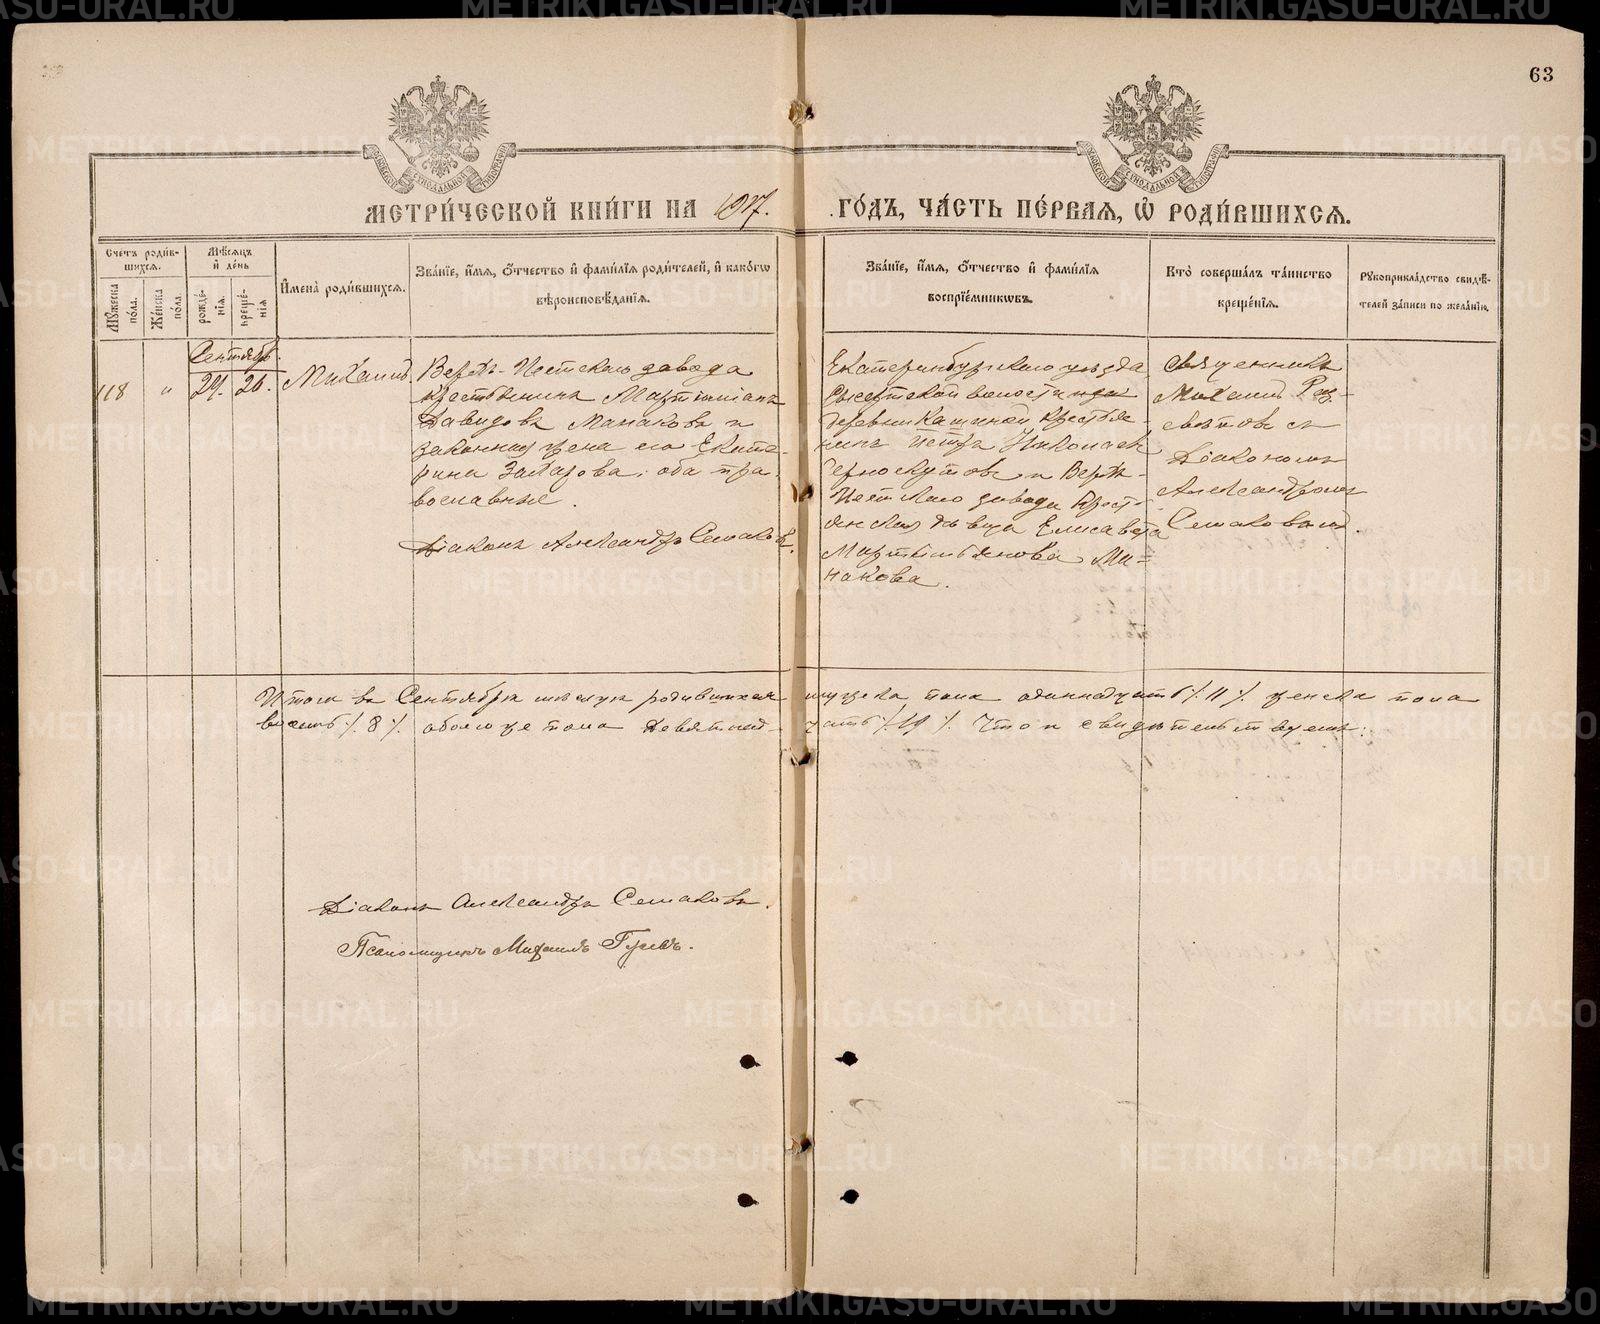 63
МЕТРИ́ЧЕСКОЙ КНИ́ГИ НА 1917. ГО́ДЪ, ЧА́СТЬ ПЕ́РВАЯ, Ѽ РОДИ́ВШИХСЯ.
Счетъ роди́в-
шихся.
Мѣ́сяцъ
и҆ де́нь
Мꙋ́жеска
по́ла.
Же́нска
по́ла.
рожде́-
нїя.
креще́-
нїя
И҆мена̀ роди́вшихся.
Зва́нїе, и҆́мя, ѻ҆́тчество и҆ фами́лїя роди́телей, и҆ како́гѡ
вѣроисповѣ́данїя.
Зва́нїе, и҆́мя, ѻ҆́тчество и҆ фами́лїя
воспрїе́мникѡвъ.
Кто̀ соверша́лъ та́инство
креще́нїя.
Рꙋкоприкла́дство свидѣ́-
телей за́писи по жела́нїю.
Сентябрь.
118 „ 24. 26. Михаилъ.
Верхъ-Исетскаго завода
крестьянинъ Мартиміанъ
Давидовъ Манаковъ и
законная жена его Екате-
рина Захарова; оба пра-
вославные.
Діаконъ Александръ Семаковъ.
Екатеринбургскаго уезда,
Сысертской волости
деревни Кашиной крестья-
нинъ Петръ Николаевъ
Черноскутовъ и Верхъ-
Исетскаго завода крест-
янская дѣвица Елисавета
Мартиміянова Ма-
накова.
Священникъ
Михаилъ
съ
Діакономъ
Александромъ
Семаковымъ.
Итого въ Сентябрѣ мѣсяцѣ родившихся мужеска пола одиннадцать /. 11 /. женска пола
восемь /. 8 /. обоего же пола девятнад- цать /. 19 /. Что и свидѣтельствуемъ:
Діаконъ Александръ Семаковъ.
Псаломщикъ Михаилъ Гусевъ.
METRIKI.GASO-URAL.RU